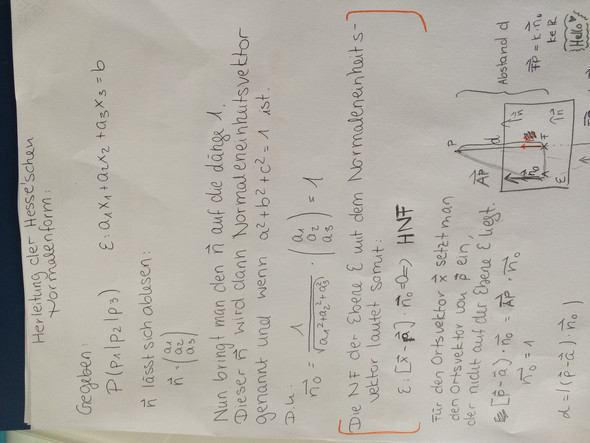 Herleitung der Hesse'schen
Normalenform:
Gegeben:
P(p1|p2|p3)   ε: a1x1+a2x2+a3x3=b
n⃗ lässt sich ablesen:
n⃗ = (a1 a2 a3)
Nun bringt man den n⃗ auf die Länge 1.
Dieser n⃗ wird dann Normaleneinheitsvektor
genannt und wenn a²+b²+c²=1 ist.
D.h.:
n⃗0 = 1/√(a1²+a2²+a3²) · (a1 a2 a3) = 1
Die NF der Ebene ε mit dem Normaleneinheits-
vektor lautet somit:
ε: [x⃗-p⃗]·n⃗0=0 => HNF
Für den Ortsvektor x⃗ setzt man
den Ortsvektor von p⃗ ein,
der nicht auf der Ebene ε liegt.
[p⃗-a⃗)·n⃗0 = AP⃗·n⃗0
n⃗0 = 1
d = |(p⃗-a⃗)·n⃗0|
P
d
AP⃗
n⃗0
n⃗
n⃗
A
F
ε
Abstand d
FP⃗ = k·n⃗0
k∈ℝ
Hello